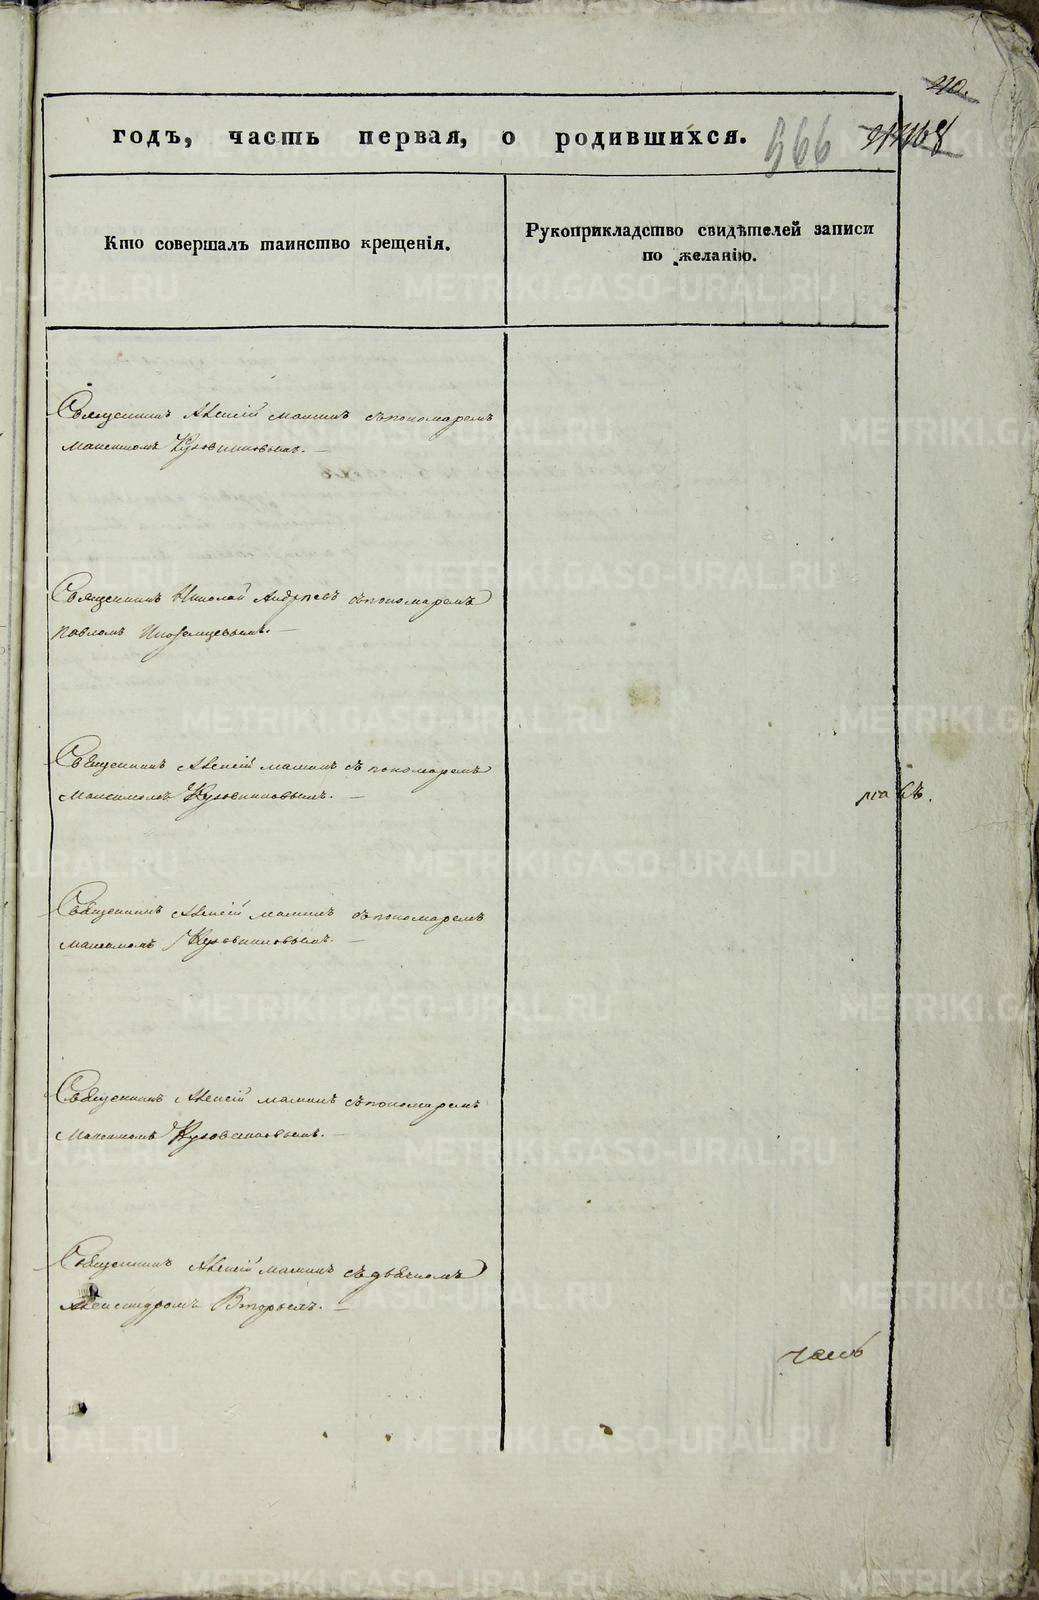 годъ, часть первая, о родившихся.
566
Кто совершалъ таинство крещенія.
Рукоприкладство свидѣтелей записи
по желанію.
Священникъ Алексій Мамин съ пономаремъ
Максимомъ Кузовниковымъ. —
Священникъ Николай Андреевъ съ пономаремъ
Павломъ Иноземцевымъ. —
Священникъ Алексій Маминъ съ пономаремъ
Максимомъ Кузовниковымъ. —
Священникъ Алексій Маминъ съ пономаремъ
Максимомъ Кузовниковымъ. —
Священникъ Алексій Маминъ съ пономаремъ
Максимомъ Кузовниковымъ. —
Священникъ Алексій Маминъ съ дьячкомъ
Александромъ Вторымъ. —
METRIKI.GASO-URAL.RU